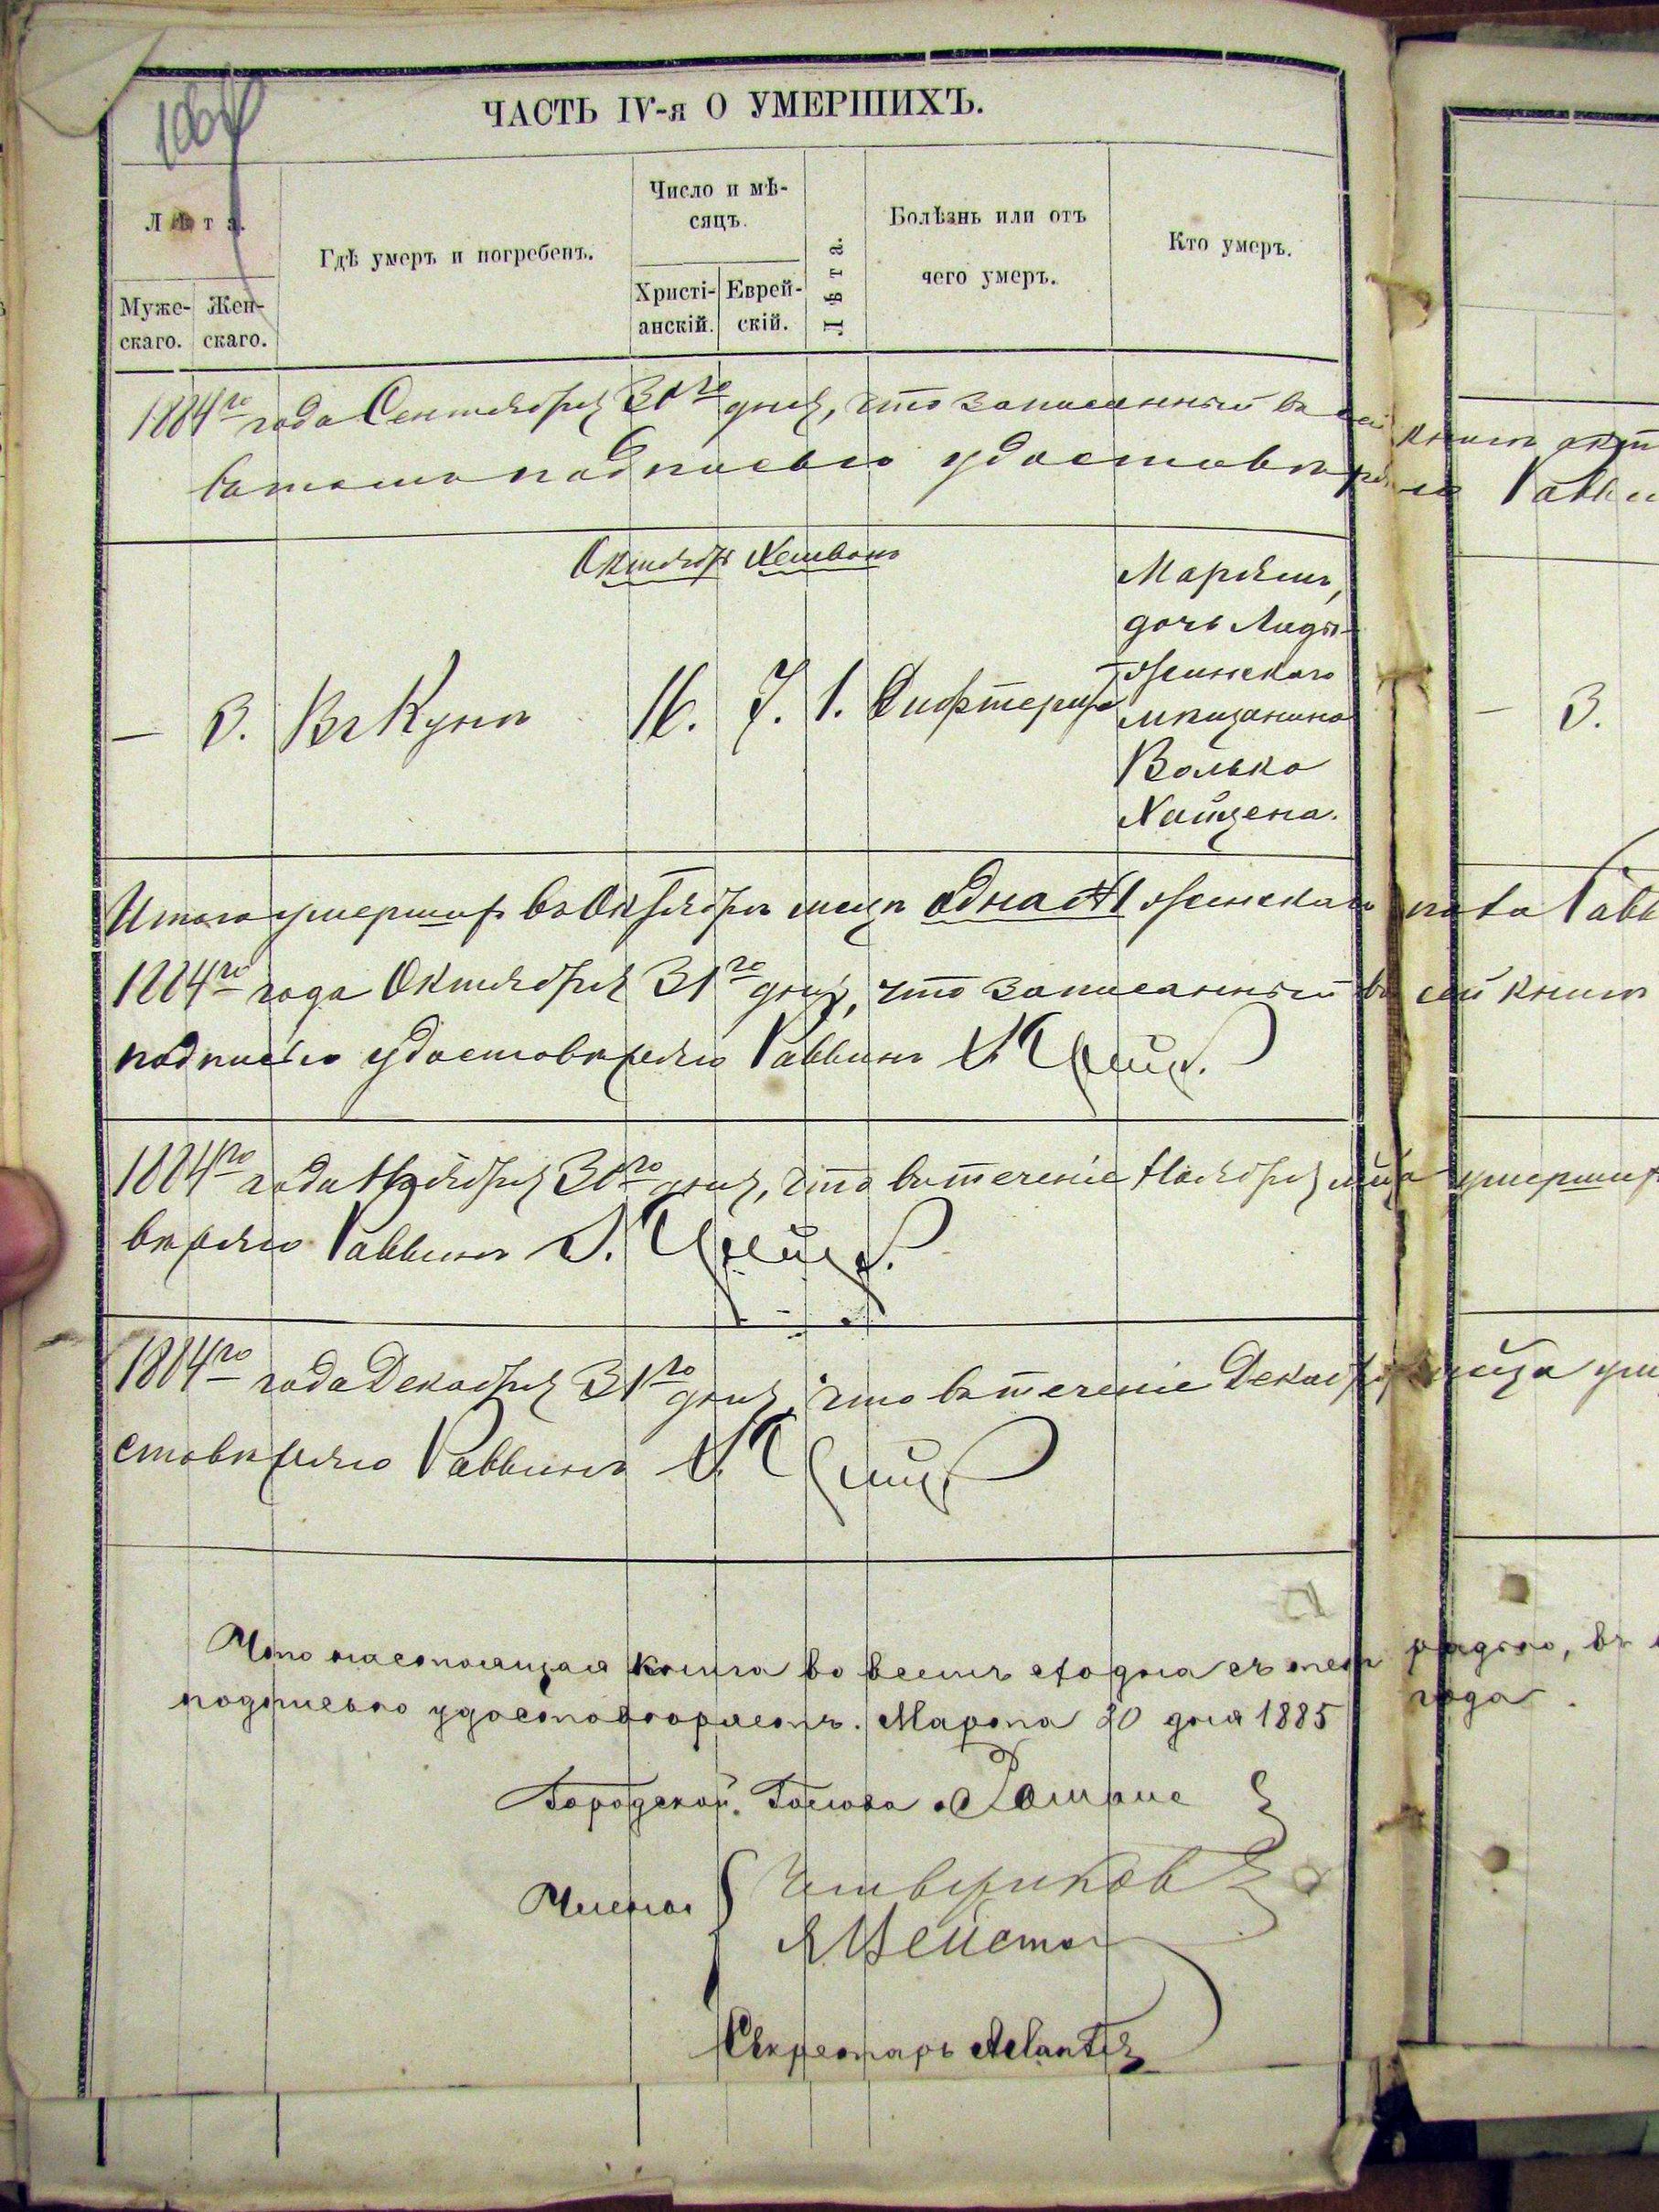 ЧАСТЬ IV-я О УМЕРШИХЪ.
Лѣта.
Муже-
скаго.
Жен-
скаго.
Гдѣ умеръ и погребенъ.
Число и мѣ-
сяцъ.
Христі-
анскій.
Еврей-
скій.
Лѣта.
Болѣзнь или отъ
чего умеръ.
Кто умеръ.
1884го года Сентября 30го дня, что записанный въ сей книгѣ
подписью удостовѣряю
Октябрь Хешванъ
— 3. Въ Купѣ 16. 7. 1. Дифтеритъ
Марьямъ,
дочь Лиды-
жинскаго
мѣщанина
Волька
Хайцена.
— 3.
Итого умершихъ въ Октябрѣ мцѣ одна №1 женскаго пола
1884го года Октября 31го дня, что записанный въ сей книгѣ
подписью удостовѣряю Раввинъ
1884го года Ноября 30го дня, что въ теченіе Ноября мца умершихъ
вѣряю Раввинъ
1884го года Декабря 31го дня, что въ теченіе Декабря мца
стовѣряю Раввинъ
Что настоящая книга во всемъ сходна съ
подписью удостовѣряетъ. Марта 20 дня 1885 года.
Городской Голова
Члены
Четвериковъ
Секретарь